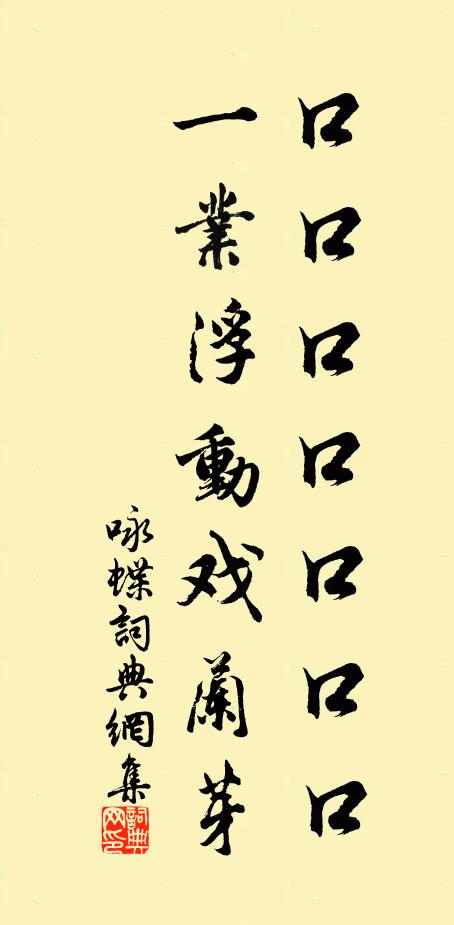 口口口口口口口
一業浮動戏蘭芽
咏蝶詞典網集
詞典网印